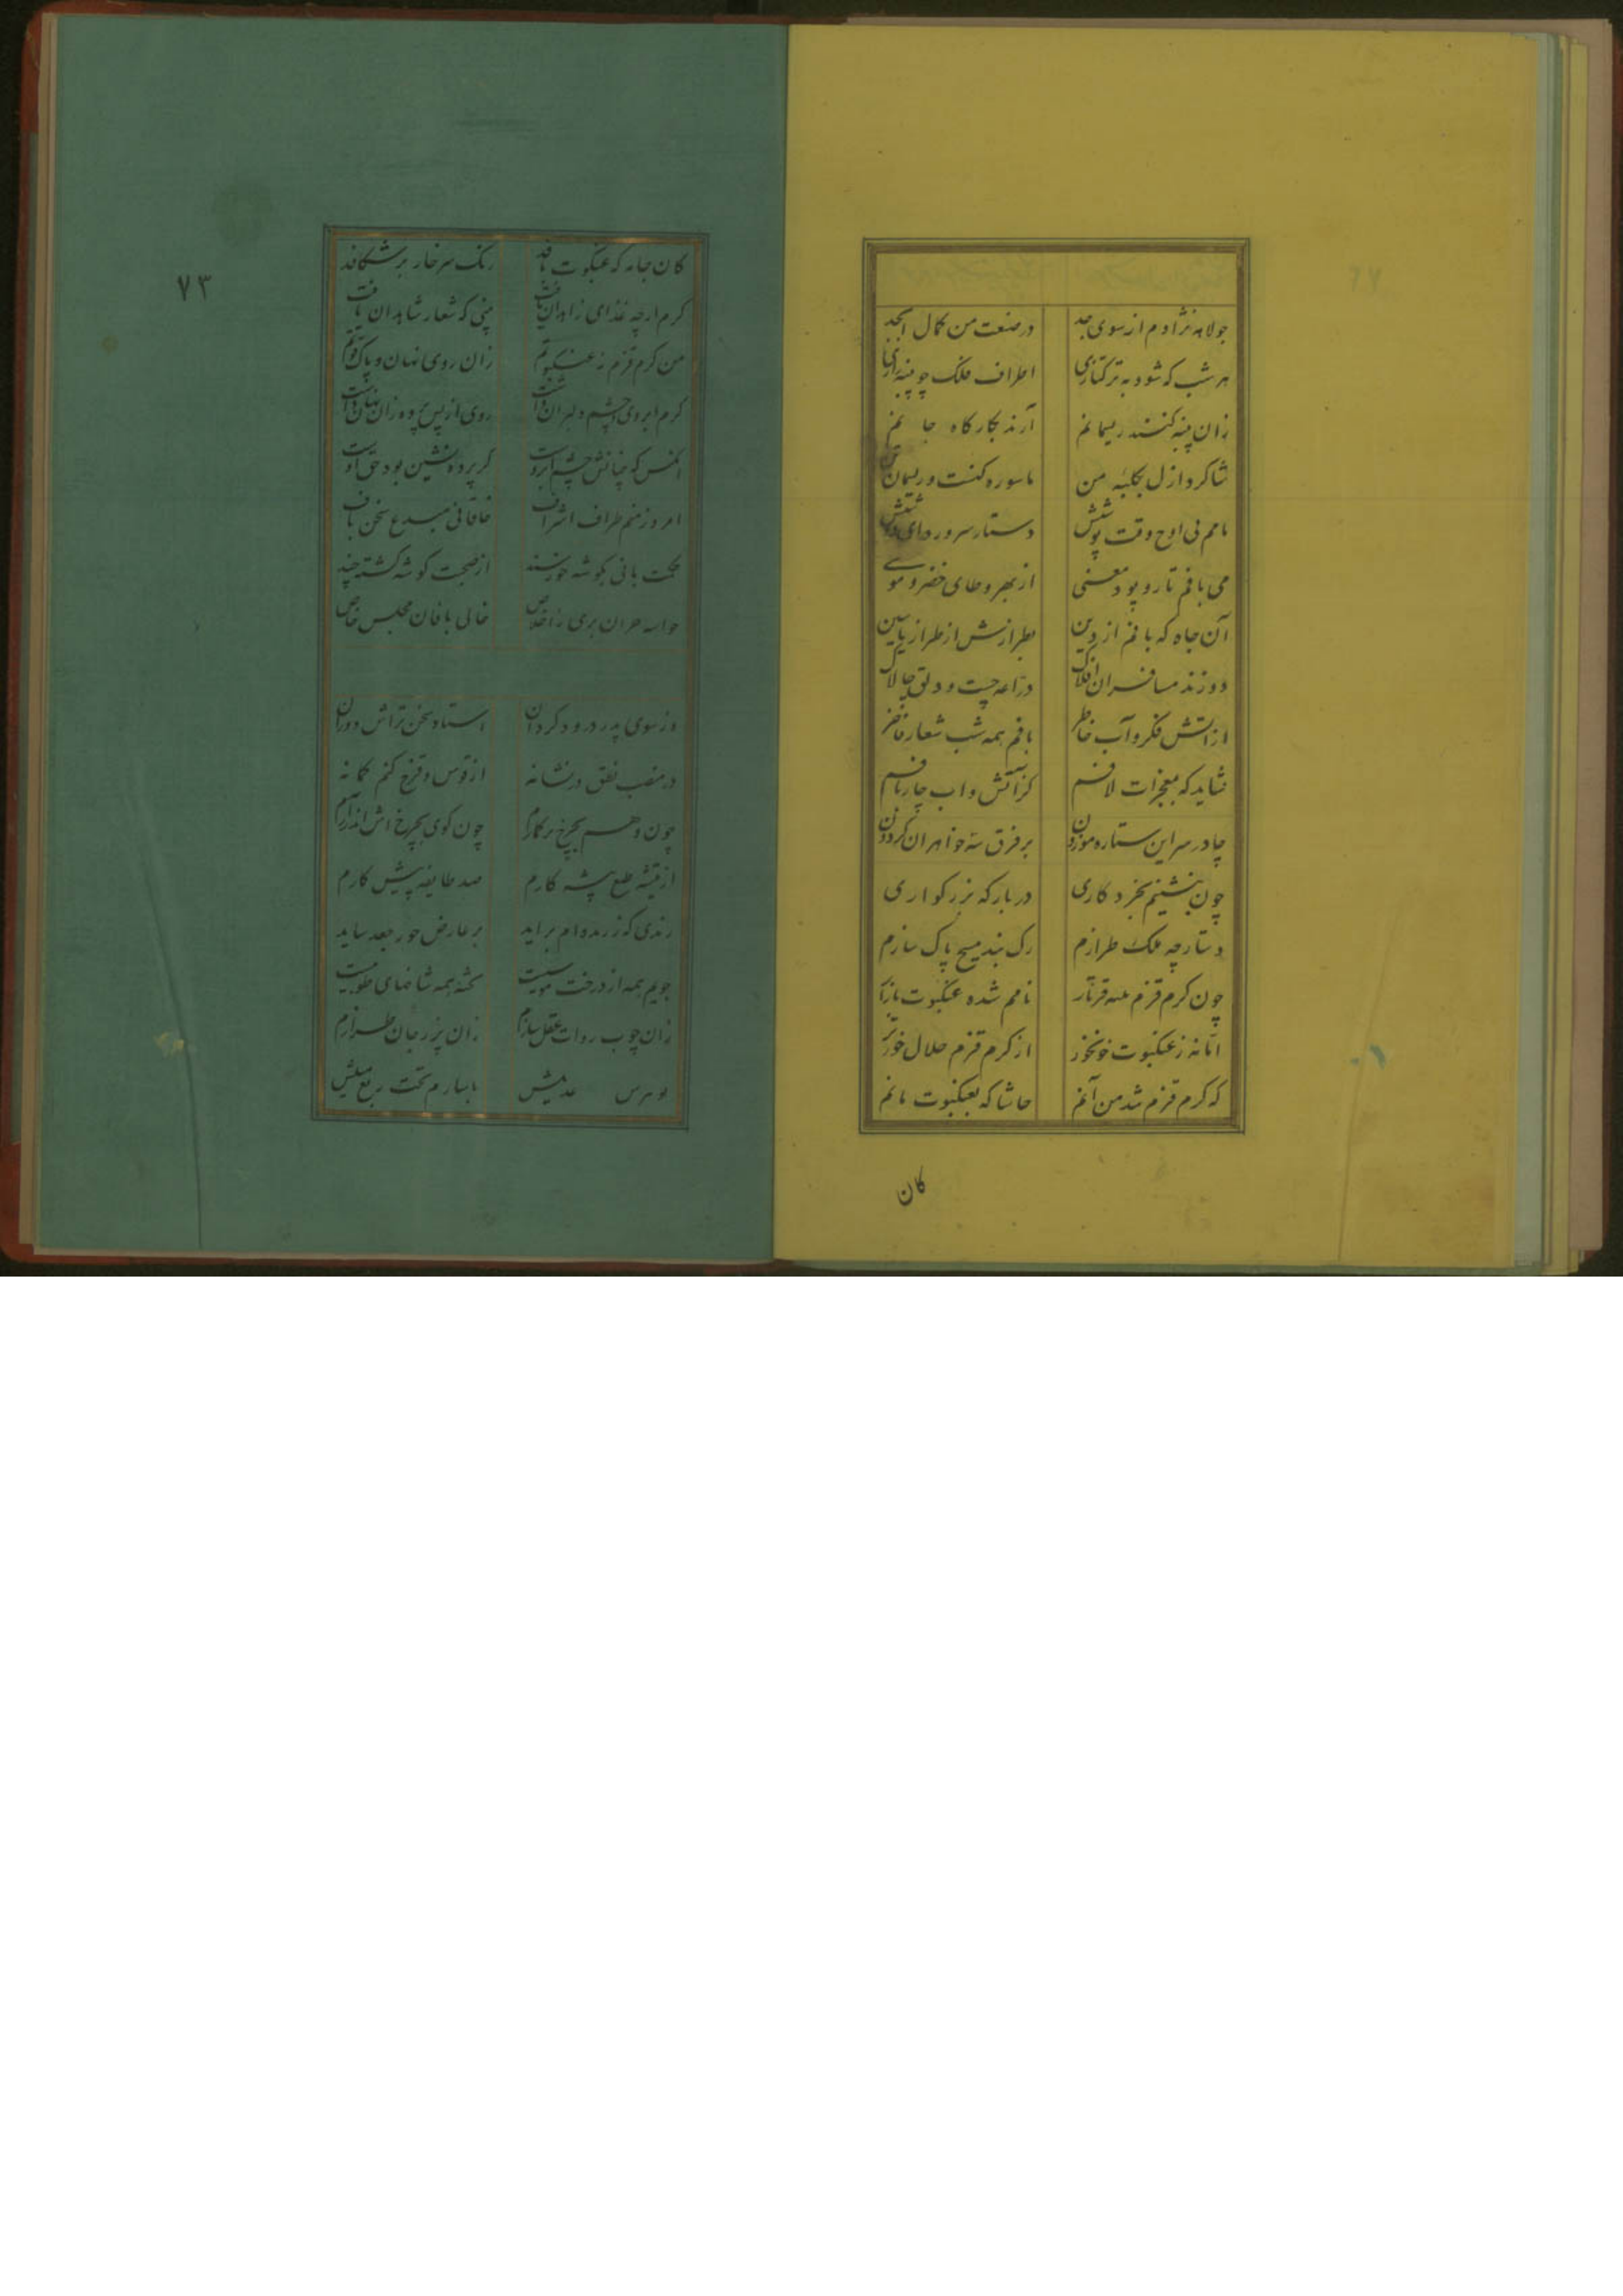 جولاهه نژادم از سوی جد در صنعت من کمال ابجد
هر شب که شود به ترکتازی اطراف فلک چو پنبه زاری
زان پنبه کنند ریسمانم آرند بکارگاه جانم
شاگرد ازل بکلبه من ماسوره کنست و ریسمان تن
بافم بی اوح وقت پوشش دستار سر و ردای دوشش
می بافم تار و پود معنی از بهر وطای خضر و موسی
آن جامه که بافم از دین بطرازش از طراز یاسین
دوزند مسافران افلاک دراعه چست و دلق چالاک
از آتش فکر و آب خاطر بافم همه شب شعار فاخر
شاید که بمعجزات لافم کز آتش و آب چار بافم
چادر سر این ستاره موزون بر فرق سه خواهران گردون
چون بنشینم بخرد کاری در بارگه بزرگواری
دستارچه ملک طرازم رگ بند مسیح پاک سازم
چون کرم قزم قزتار نامم شده عنکبوت
اما نه ز عنکبوت خونخور از کرم قزم حلال خورتر
که کرم قزم شد من آنم حاشا که بعنکبوت مانم
کان
۷۳
کان جامه که عنکبوت بافد رنگ سر خار بر شکافد
کرم ارچه غذای زاهدان یافت بینی که شعار شاهدان بافت
من کرم قزم نه عنکبوتم زان روی نهان و پاک قوتم
کرم ابروی و چشم دلبران داشت روی از پس پرده زان نهان داشت
آنکس که چنانش چشم و ابروست گر پرده نشین بود حق اوست
امروز منم طراف اشراف خاقانی مبدع سخن باف
حکمت بافی بگوشه خورسند از صحبت گوشه گشته چند
خالی بافان مجلس خاص
وز سوی پدر درودگر دان استاد سخن تراش دوران
در منقب نطق در نشانه از قوس و قزح کنم کمانه
چون وهم بچرخ برگمارم چون گوی بچرخ اش اندر آرم
از تیشه طبع پیشه کارم صد طایفه پیش کارم
رندی که ز رنده ام براید بر عارض حور جعد ساید
جویم همه از درخت موسیست تخته همه شاخهای طوبیست
زان چوب روات عقل سازم زان بزر جان طرازم